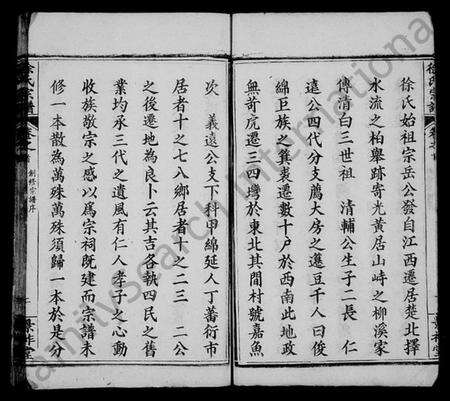 徐氏宗譜
徐氏始祖宗岳公發自江西遷居楚北擇
水流之柏舉跡寄光黃居山峙之柳溪家
傳清白三世祖 清輔公生子二長 仁
遠公四代分支薦大房之籩豆千人曰俊
綿巨族之箕裘遷數十戶於西南此地政
無苛虎遷三四灣於東北其間村號嘉魚
次 義遠公支下科甲綿延人丁蕃衍市
居者十之七八鄉居者十之二三 二公
之後遷地為良卜云其吉各執四民之舊
業均承三代之遺風有仁人孝子之心動
收族敬宗之感以為宗祠既建而宗譜未
修一本散為萬殊萬殊須歸一本於是分
徐氏宗譜
創修宗譜序
familysearch International